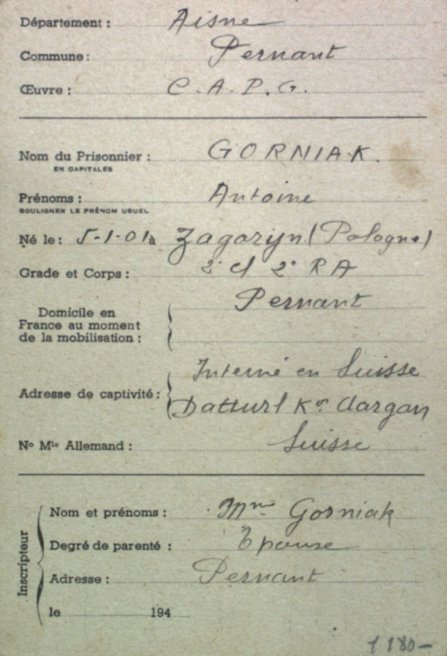 Département : Aisne
Commune : Pernant
Œuvre : C.A.P.G.
Nom du Prisonnier : GORNIAK.
EN CAPITALES
Prénoms : Antoine
SOULIGNER LE PRÉNOM USUEL
Né le : 5-1-01 à Zagorzyn (Pologne)
Grade et Corps : 2e cl 2e RA
Domicile en
France au moment
de la mobilisation : Pernant
Interné en Suisse
Adresse de captivité : Datturl Kon Aargau
No Mle Allemand : Suisse
Inscripteur
Nom et prénoms : Mme Gorniak
Degré de parenté : Epouse
Adresse : Pernant
le 194
1180-